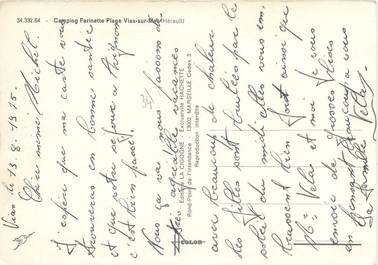 34.332.64 - Camping Farinette Plage Vias-sur-Mer (Hérault)
Vias le 13-8-1975.
Chère mémé Michel.
J'espère que ma carte vous
trouveras en bonne santée
et que votre séjour à Avignon
c'est bien passé.
Nous ça va nous passons de
agréable vacances
avec beaucoup de chaleur
les filles sont brulées par le
soleil du midi elles vous em-
brassent bien fort ainsi que
Mr Velas et moi je vous
envoie de grosses bises
en pensant beaucoup a vous
La famille Velas
Editions LA CIGOGNE - Exclusivité HACHETTE
Rond-Point de l'Intendance - 13002 MARSEILLE Cedex 3
Reproduction interdite
COLOR